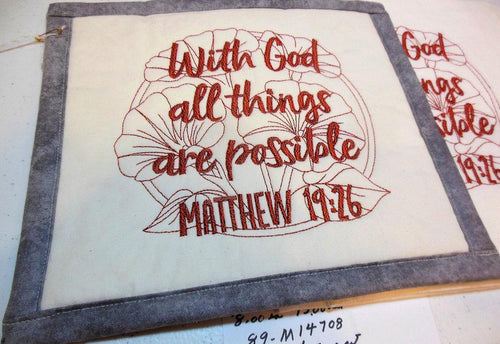 With God
all things
are possible
MATTHEW 19:26
God
ngs
sible
19:26
89-M14708